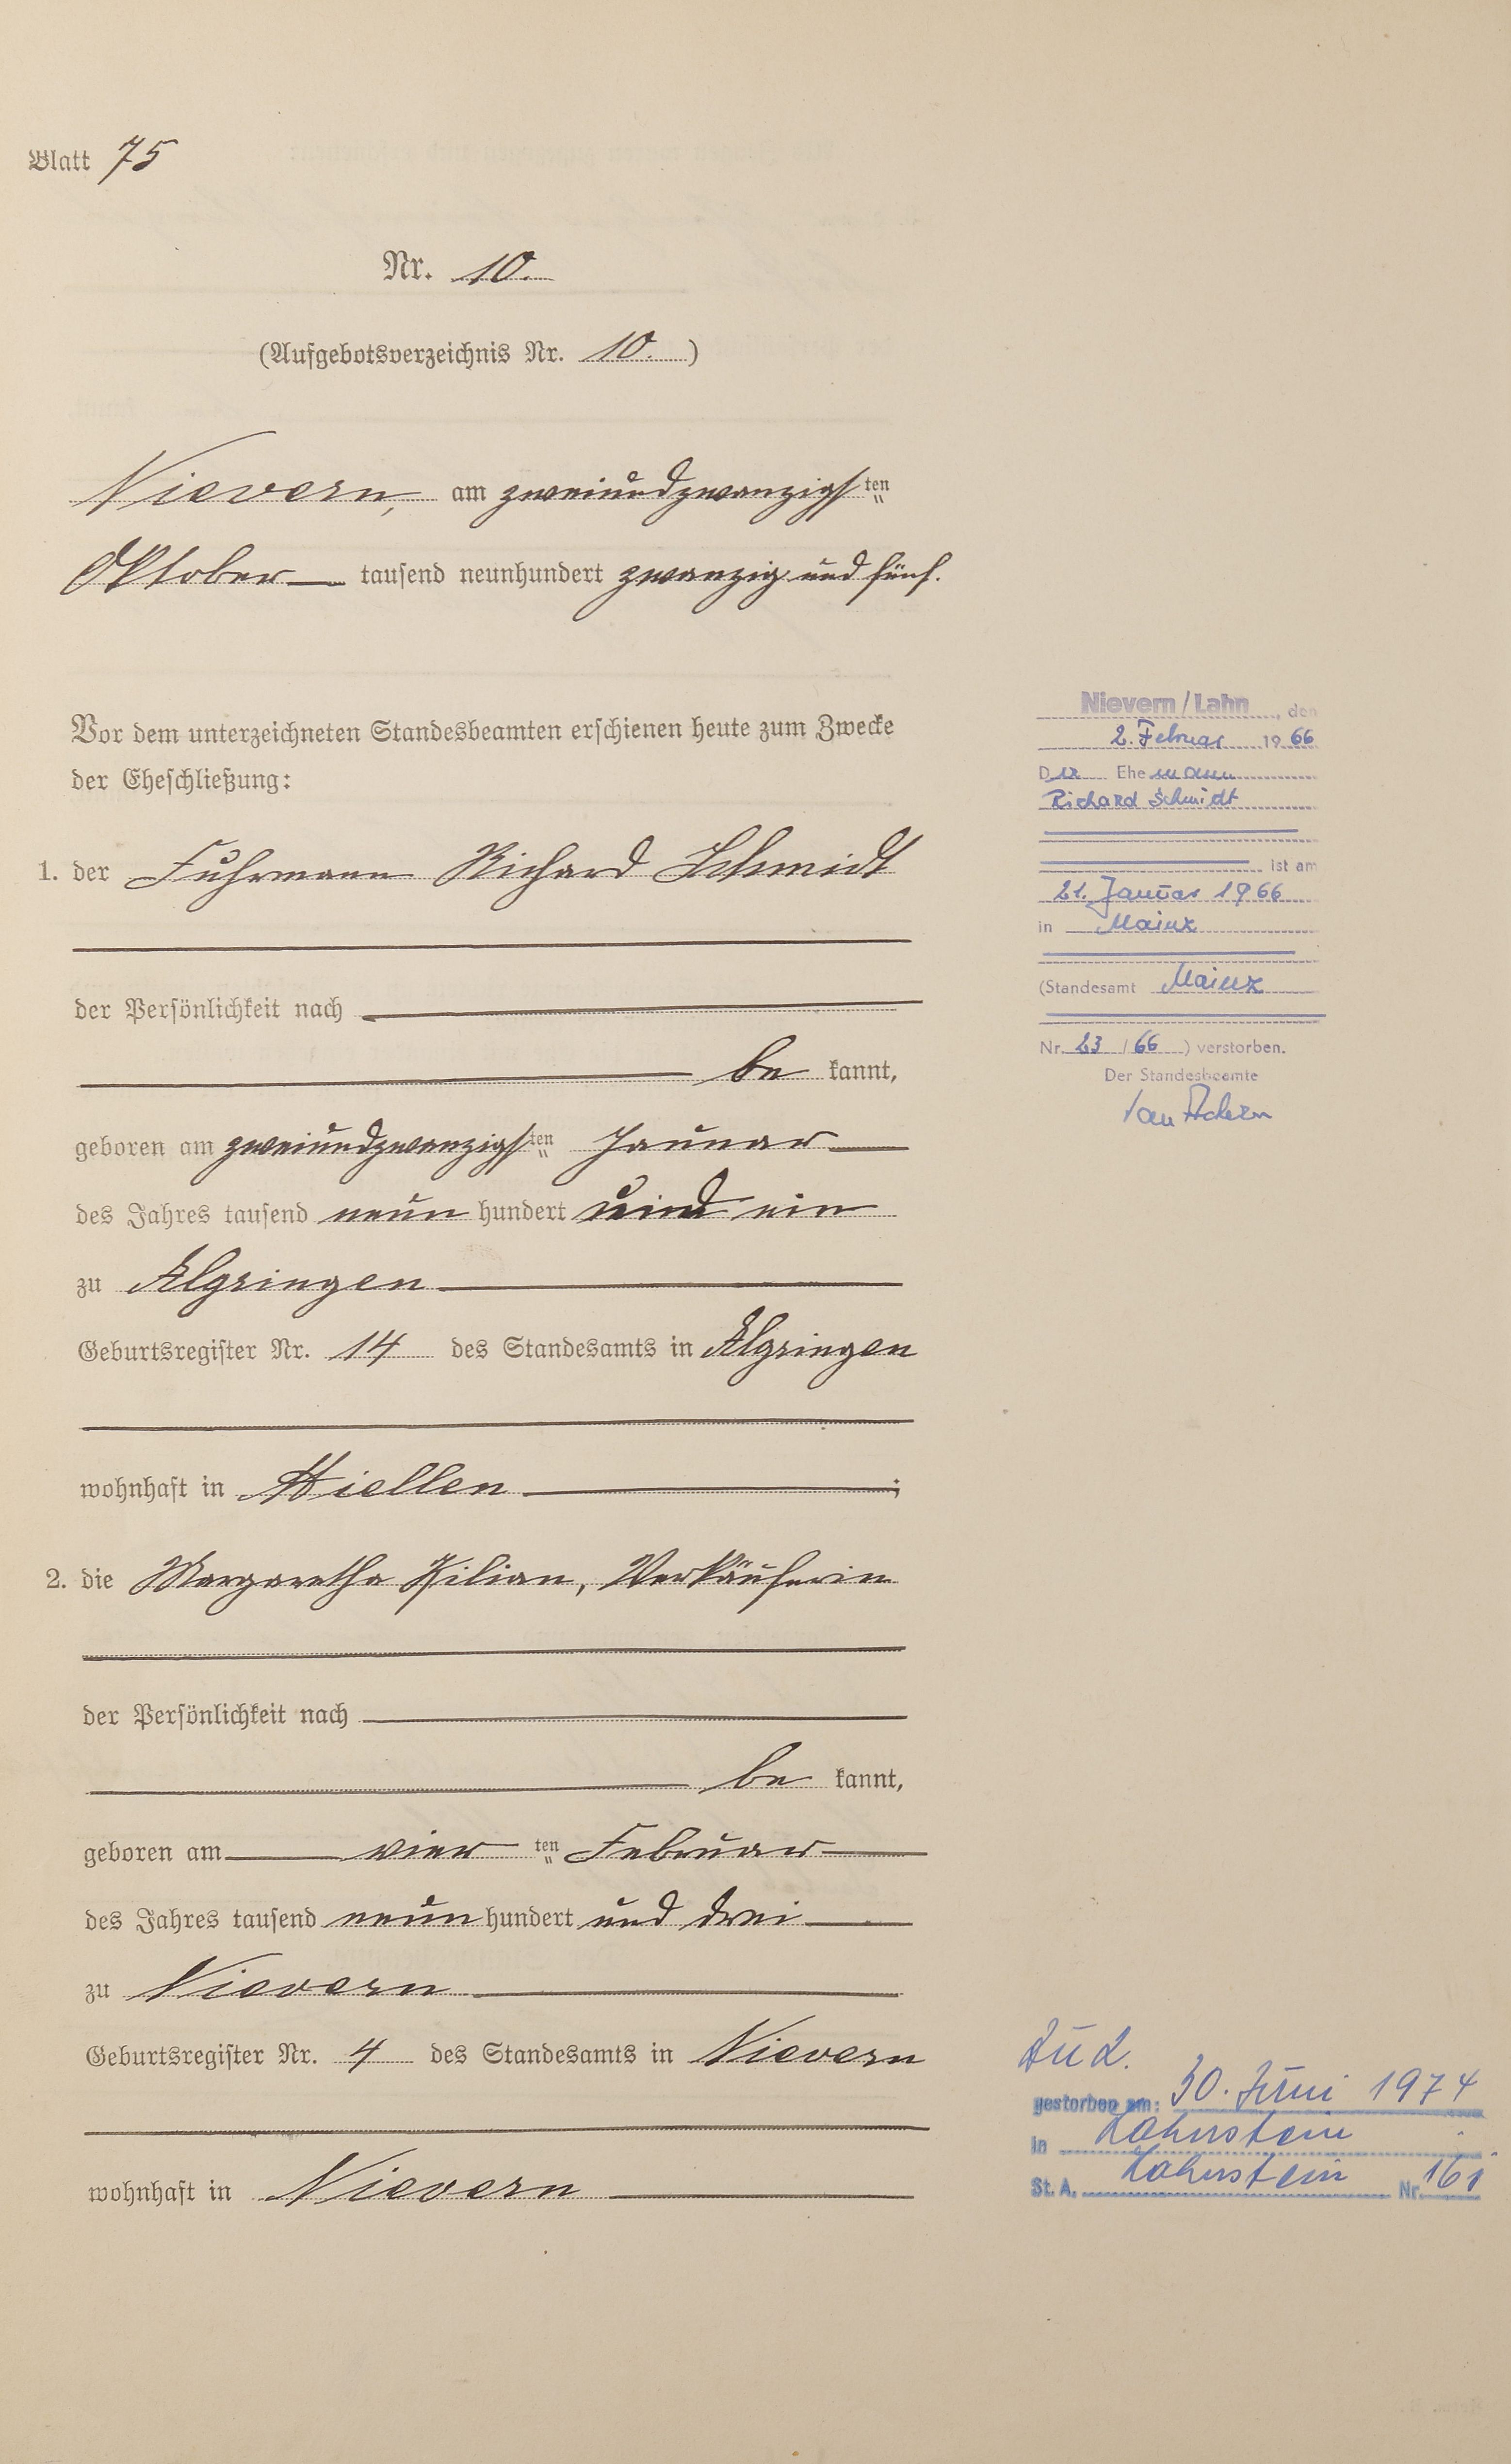 Blatt 75
Nr. 10.
(Aufgebotsverzeichnis Nr. 10.)
Nievern, am zweiundzwanzigsten
Oktober tausend neunhundert zwanzig und fünf.
Vor dem unterzeichneten Standesbeamten erschienen heute zum Zwecke
der Eheschließung:
1. der Fuhrmann Richard Schmidt
der Persönlichkeit nach
be kannt,
geboren am zweiundzwanzigsten Januar
des Jahres tausend neun hundert und ein
zu Algringen
Geburtsregister Nr. 14 des Standesamts in Algringen
wohnhaft in Miellen;
2. die Margaretha Kilian, Verkäuferin
der Persönlichkeit nach
be kannt,
geboren am vier ten Februar
des Jahres tausend neun hundert und drei
zu Nievern
Geburtsregister Nr. 4 des Standesamts in Nievern
wohnhaft in Nievern
Nievern/Lahn, den
2. Februar 1966
Der Ehemann
Richard Schmidt
ist am
21. Januar 1966
in Mainz
(Standesamt Mainz
Nr. 23/66) verstorben.
Der Standesbeamte
zu 2.
gestorben am: 30. Juni 1974
in Lahnstein
St. A. Lahnstein Nr. 161